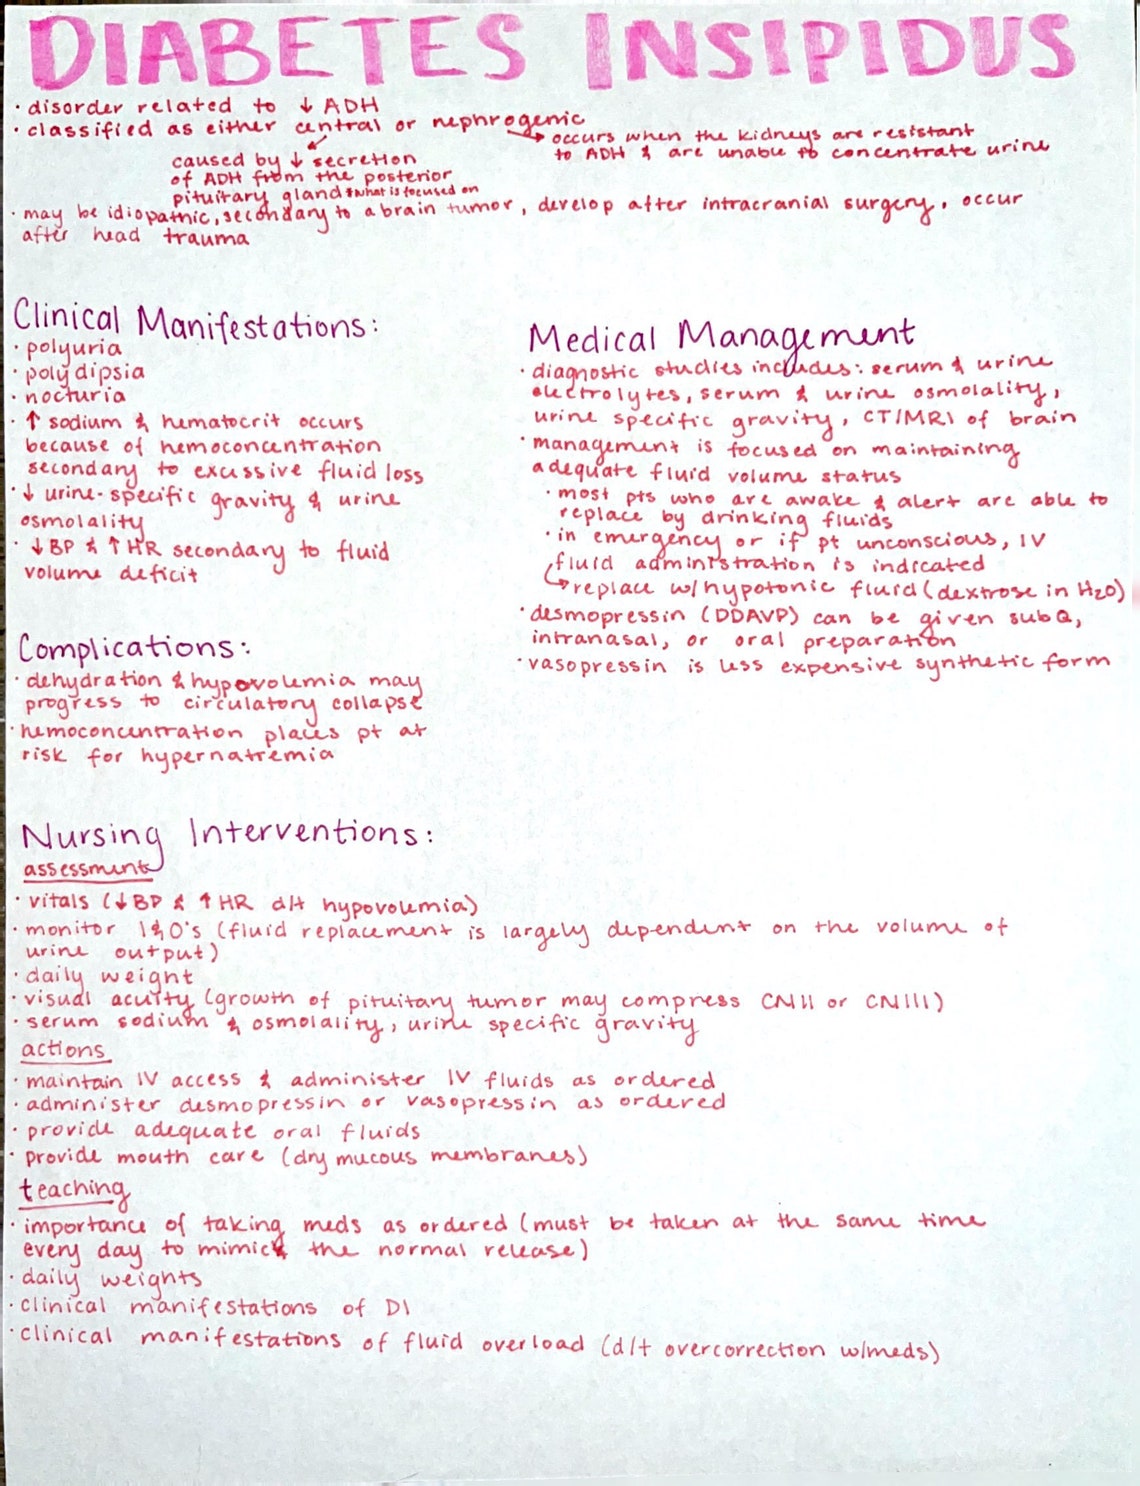 DIABETES INSIPIDUS
· disorder related to ↓ ADH
· classified as either central or nephrogenic
→ occurs when the kidneys are resistant
to ADH & are unable to concentrate urine
caused by ↓ secretion
of ADH from the posterior
pituitary gland *what is focused on
· may be idiopathic, secondary to a brain tumor, develop after intracranial surgery, occur
after head trauma
Clinical Manifestations:
· polyuria
· polydipsia
· nocturia
· ↑ sodium & hematocrit occurs
because of hemoconcentration
secondary to excessive fluid loss
· ↓ urine-specific gravity & urine
osmolality
· ↓ BP & ↑ HR secondary to fluid
volume deficit
Complications:
· dehydration & hypovolemia may
progress to circulatory collapse
· hemoconcentration places pt at
risk for hypernatremia
Medical Management
· diagnostic studies includes: serum & urine
electrolytes, serum & urine osmolality,
urine specific gravity, CT/MRI of brain
· management is focused on maintaining
adequate fluid volume status
· most pts who are awake & alert are able to
replace by drinking fluids
· in emergency or if pt unconscious, IV
fluid administration is indicated
↳ replace w/ hypotonic fluid (dextrose in H2O)
· desmopressin (DDAVP) can be given subQ,
intranasal, or oral preparation
· vasopressin is less expensive synthetic form
Nursing Interventions:
assessment
· vitals (↓BP & ↑HR d/t hypovolemia)
· monitor I&O's (fluid replacement is largely dependent on the volume of
urine output)
· daily weight
· visual acuity (growth of pituitary tumor may compress CNII or CNIII)
· serum sodium & osmolality, urine specific gravity
actions
· maintain IV access & administer IV fluids as ordered
· administer desmopressin or vasopressin as ordered
· provide adequate oral fluids
· provide mouth care (dry mucous membranes)
teaching
· importance of taking meds as ordered (must be taken at the same time
every day to mimick the normal release)
· daily weights
· clinical manifestations of DI
· clinical manifestations of fluid overload (d/t overcorrection w/meds)